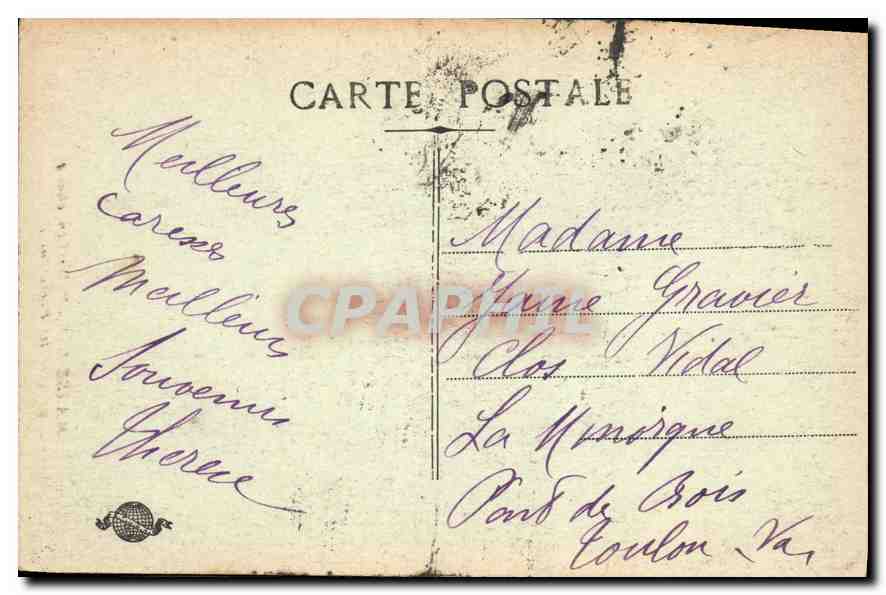 CARTE POSTALE
Meilleures
Caresses
Meilleurs
Souvenirs
Therese
Madame
Gravier
Clos Vidal
La
Pont de Bois
Toulon Var
CPAPHIL